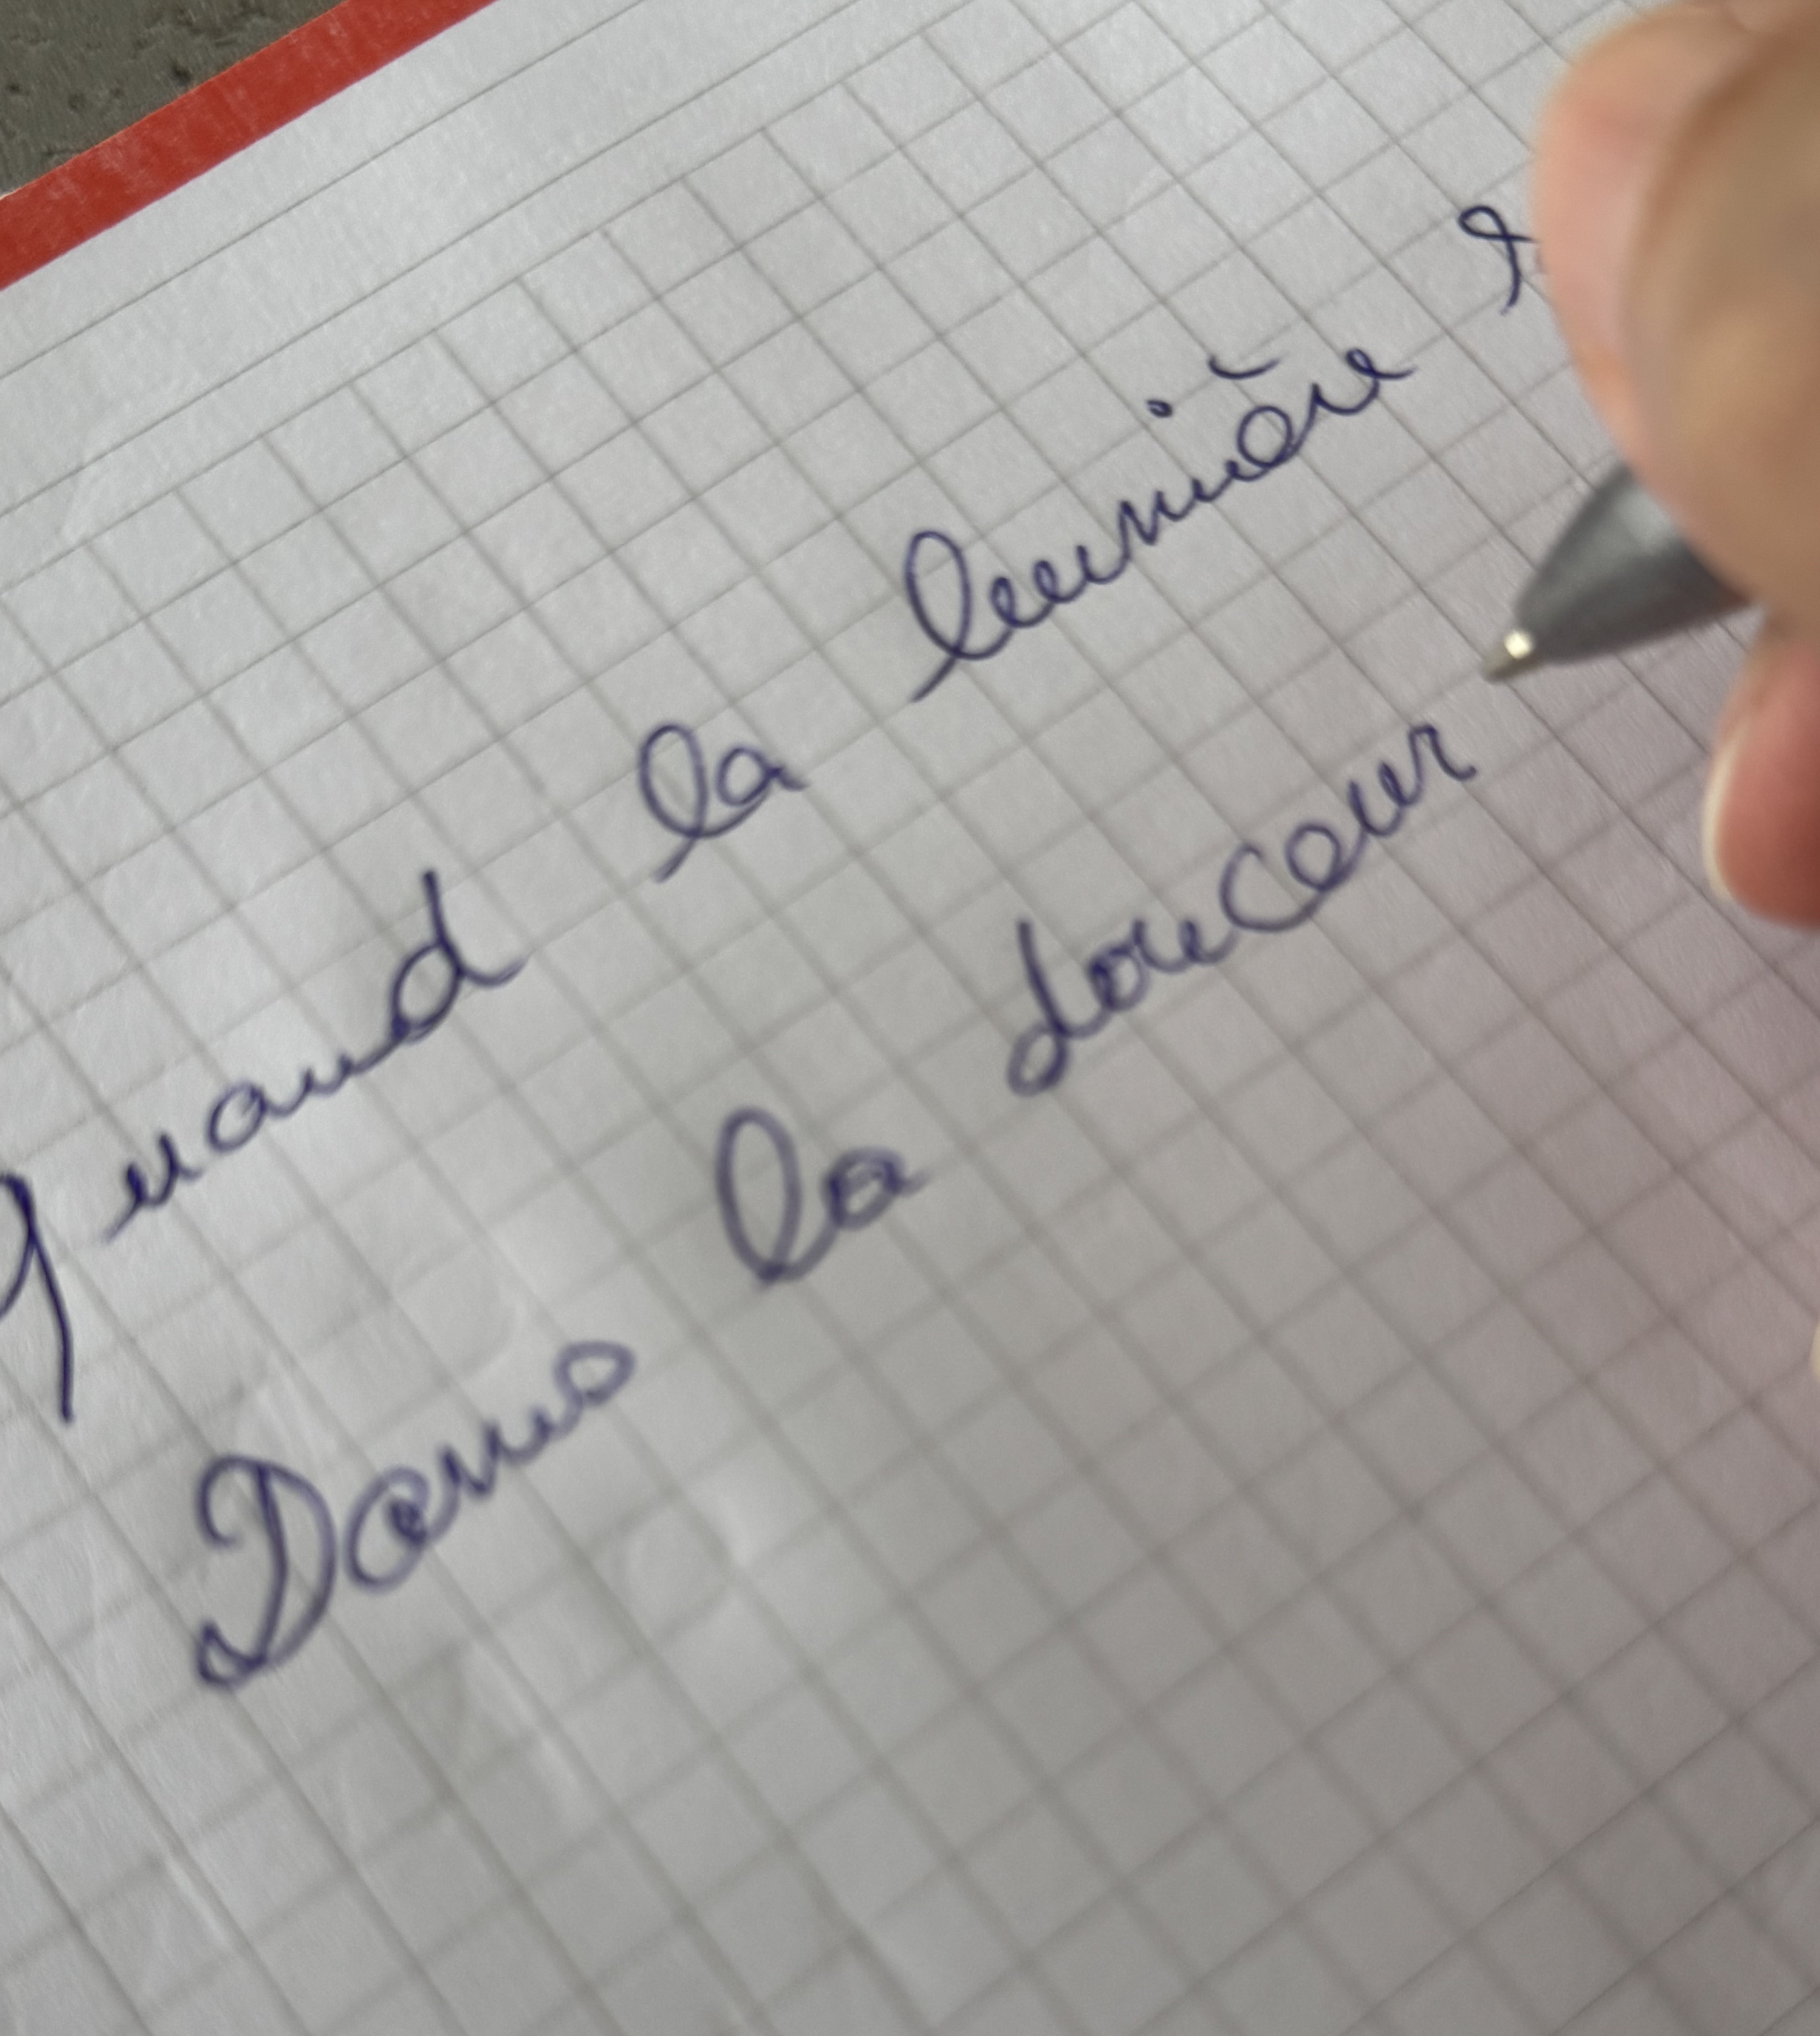 quand la lumière
Dans la douceur